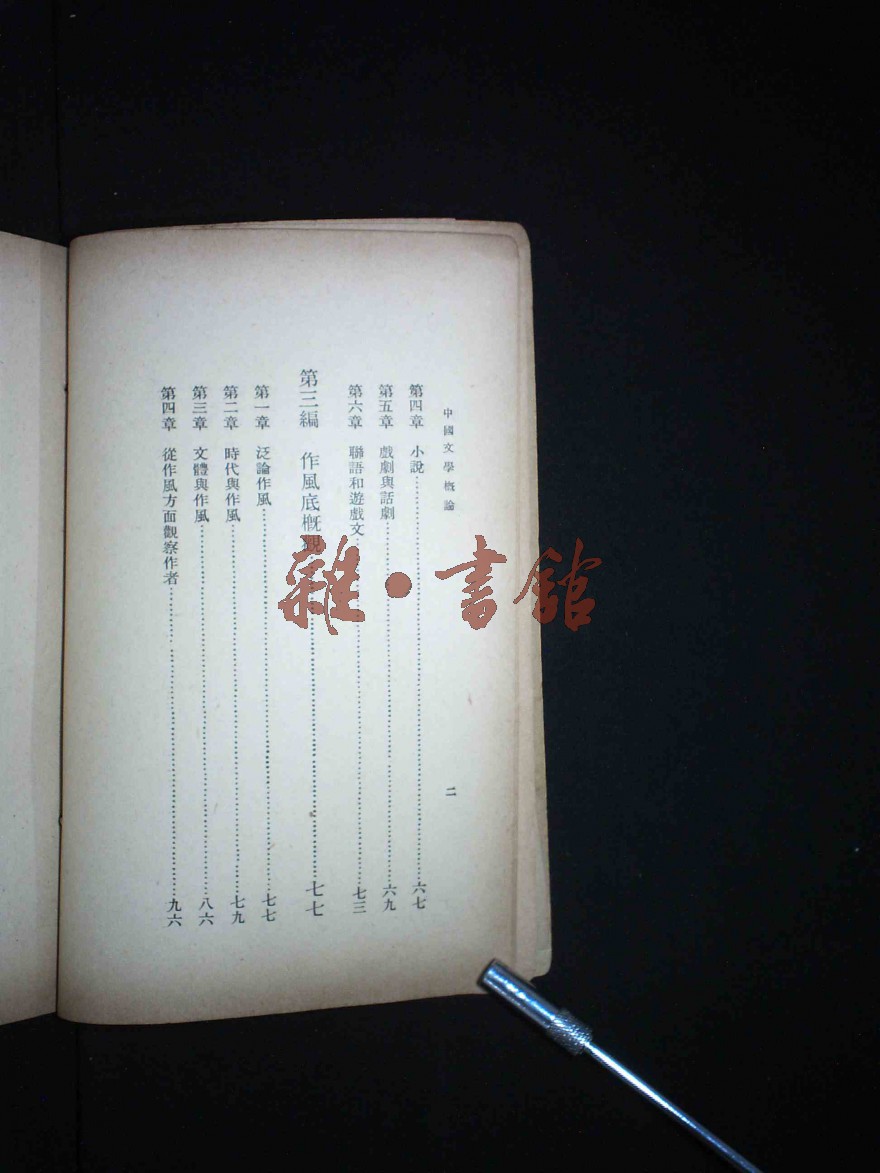 中國文學概論
二
第四章 小說……六七
第五章 戲劇與話劇……六九
第六章 聯語和遊戲文……七三
第三編 作風底概觀……七七
第一章 泛論作風……七七
第二章 時代與作風……七九
第三章 文體與作風……八六
第四章 從作風方面觀察作者……九六
雜·書館